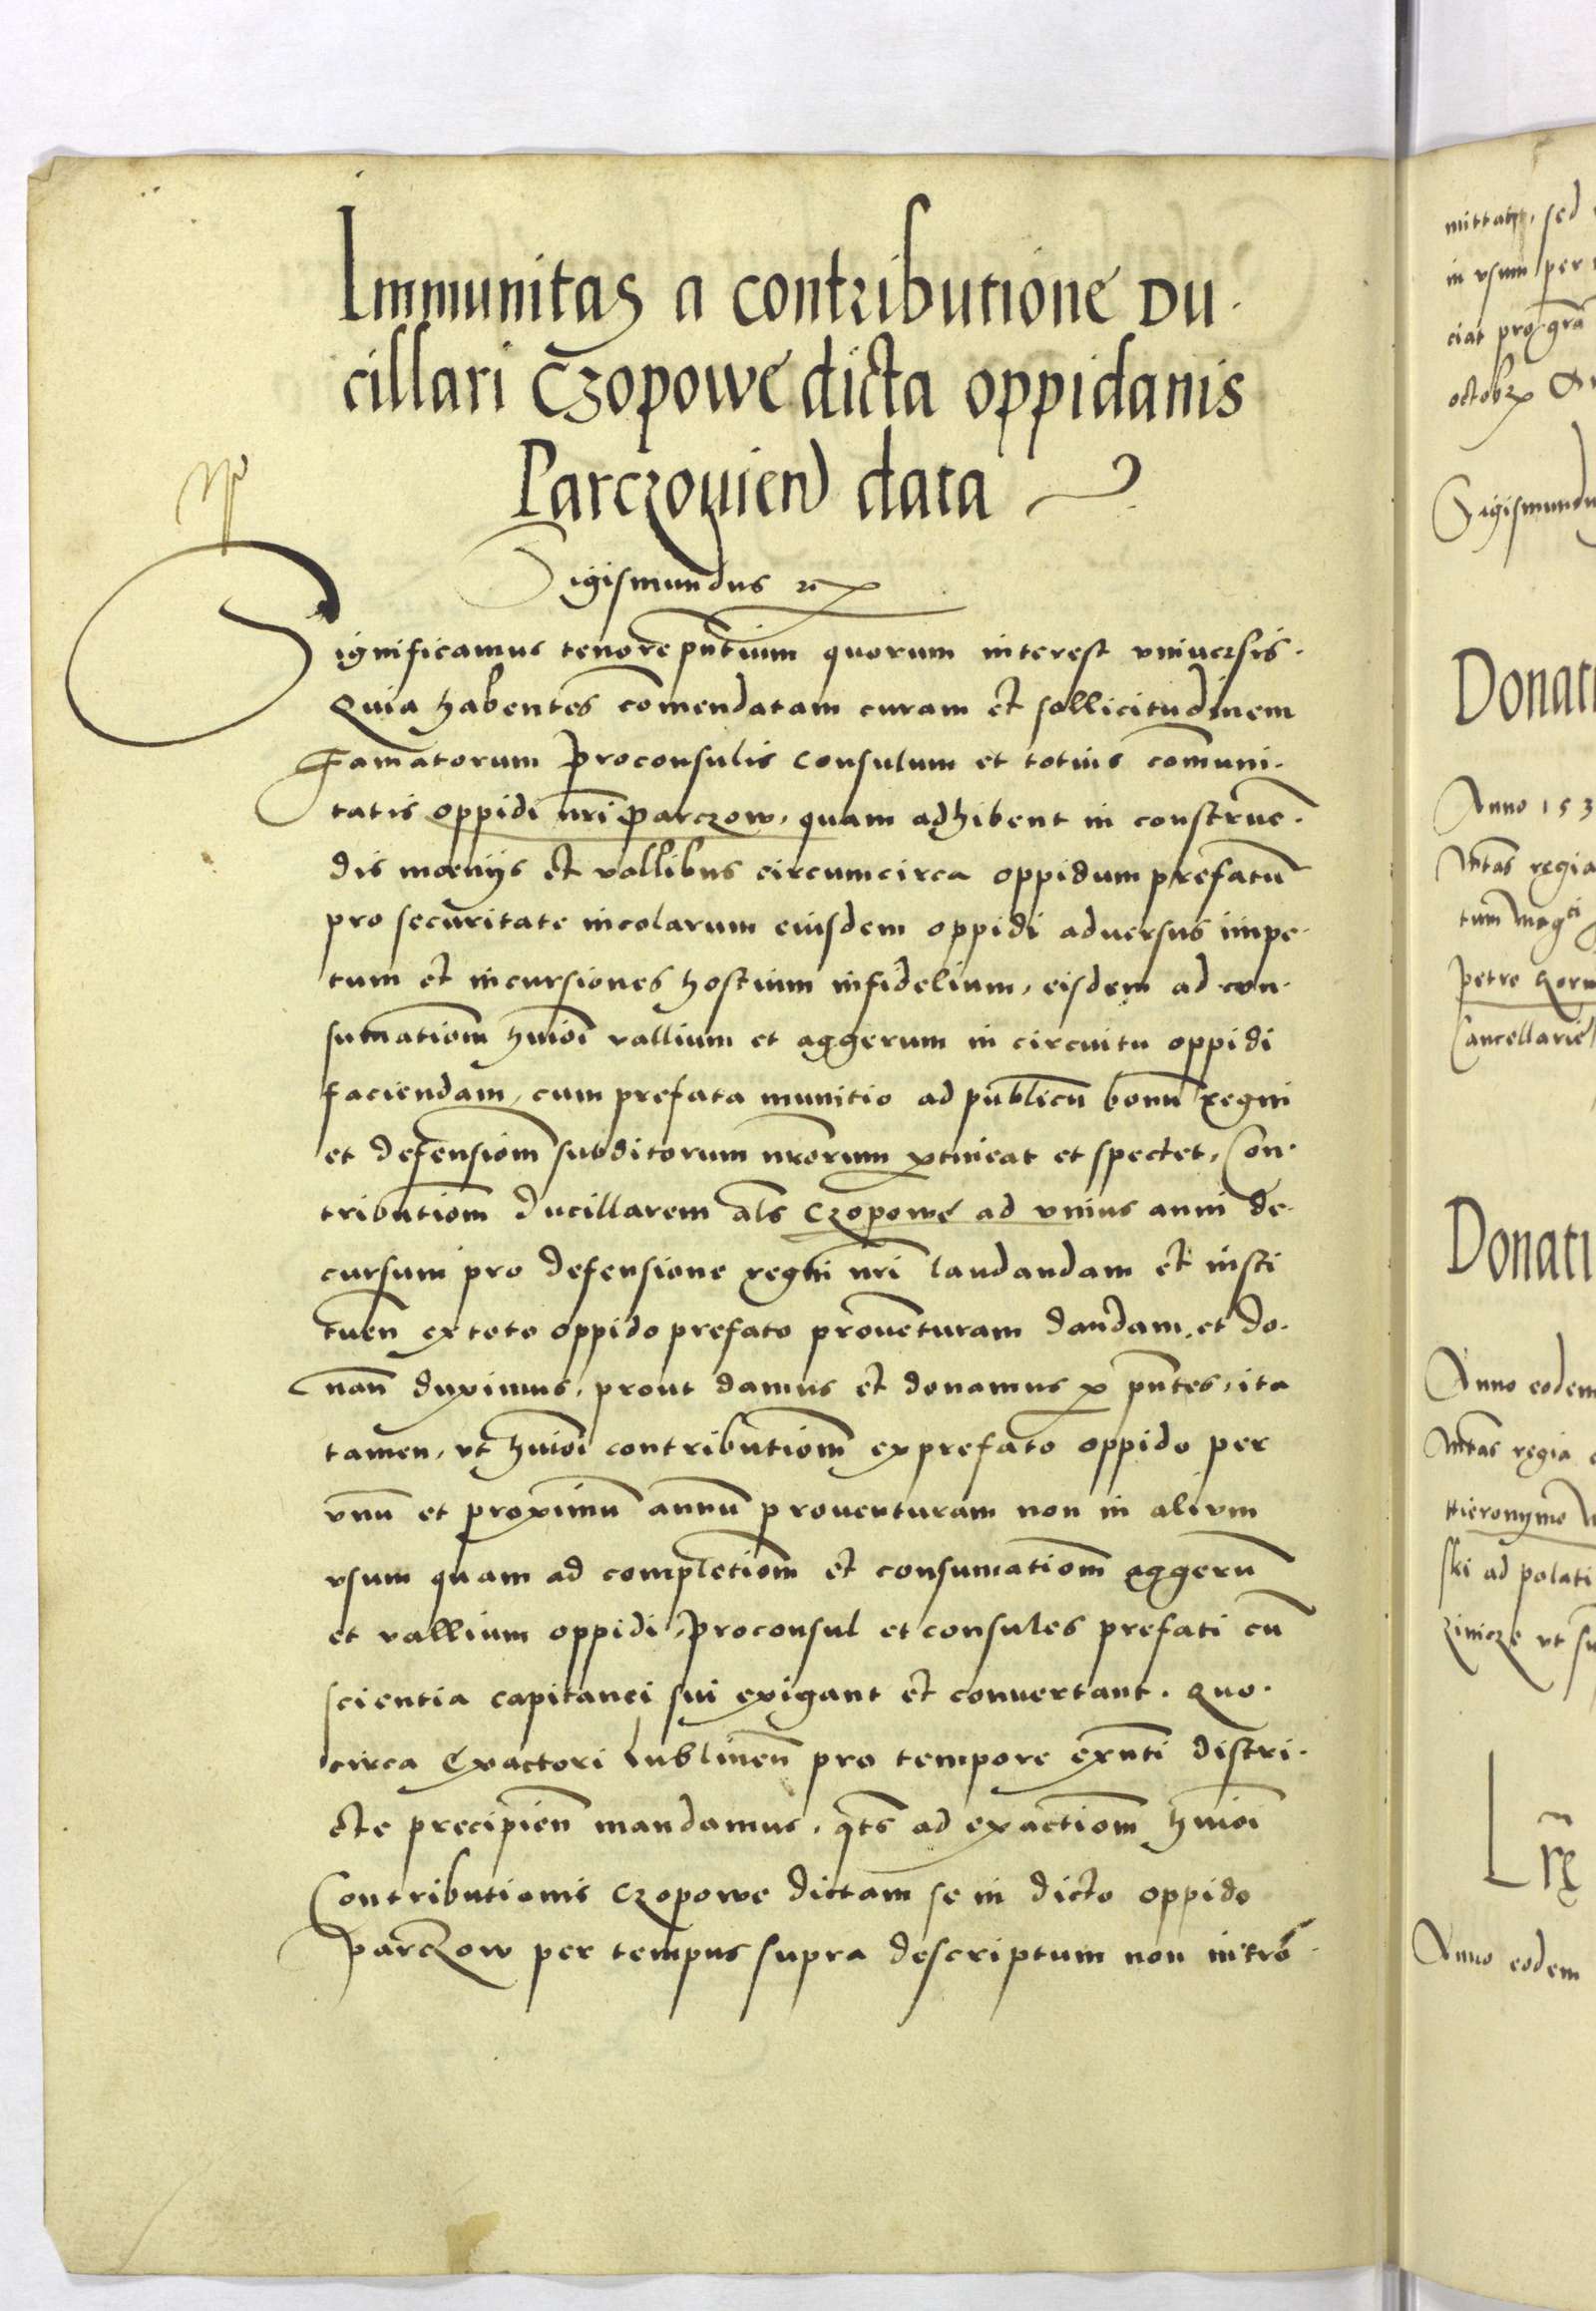 Immunitas a contributione du-
cillari Czopowe dicta oppidanis
Parczovien data
Sigismundus rex
Significamus tenore pntium quorum interest universis.
Quia habentes comendatam curam et sollicitudinem
Famatorum Proconsulis Consulum et totius comuni-
tatis oppidi nri Parczow, quam adhibent in construe-
dis moenijs et vallibus circumcirca oppidum prefatu
pro securitate incolarum eiusdem oppidi adversus impe-
tum et incursiones hostium infidelium, eisdem ad con-
sumationem hmoi vallium et aggerum in circuitu oppidi
faciendam, cum prefata munitio ad publicu bonu regni
et defensionem subditorum nrorum ptineat et spectet, Con-
tributionem ducillarem als Czopowe ad unius anni de-
cursum pro defensione regni nri laudandam et insti
tuen ex toto oppido prefato proventuram dandam, et do-
nan duximus, prout damus et donamus p pntes, ita
tamen, ut hmoi contributionem ex prefato oppido per
unu et proximu annu proventuram non in alium
usum quam ad completionem et consumationem aggeru
et vallium oppidi, Proconsul et consules prefati cu
scientia capitanei sui exigant et convertant. Quo-
circa Exactori Lublinen pro tempore exnti distri-
cte precipien mandamus, qts ad exactionem hmoi
Contributionis Czopowe dictam se in dicto oppido
Parczow per tempus supra descriptum non intro-
mittat, sed
in usum per
ciat pro gra
octobr
Sigismundu
Donati
Anno 153
Mtas regia
tum Magci
Petro
Cancellarie
Donati
Anno eodem
Mtas regia
Hieronymo
ski ad palati
ut su
Lrę
Anno eodem